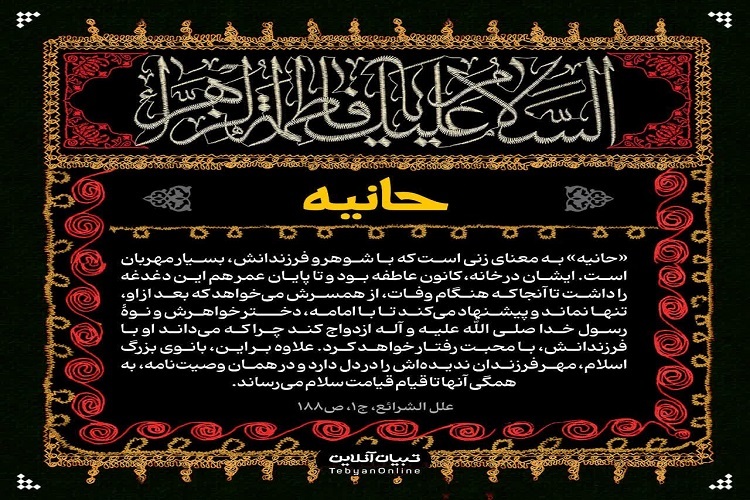 السلام علیک یا فاطمة الزهرا
حانیه
«حانیه» به معنای زنی است که با شوهر و فرزندانش، بسیار مهربان
است. ایشان در خانه، کانون عاطفه بود و تا پایان عمر هم این دغدغه
را داشت تا آنجا که هنگام وفات، از همسرش می‌خواهد که بعد از او،
تنها نماند و پیشنهاد می‌کند تا با امامه، دختر خواهرش و نوهٔ
رسول خدا صلی الله علیه و آله ازدواج کند چرا که می‌داند او با
فرزندانش، با محبت رفتار خواهد کرد. علاوه بر این، بانوی بزرگ
اسلام، مهر فرزندان ندیده‌اش را در دل دارد و در همان وصیت‌نامه، به
همگی آنها تا قیام قیامت سلام می‌رساند.
علل الشرائع، ج۱، ص۱۸۸
تبیان آنلاین
TebyanOnline